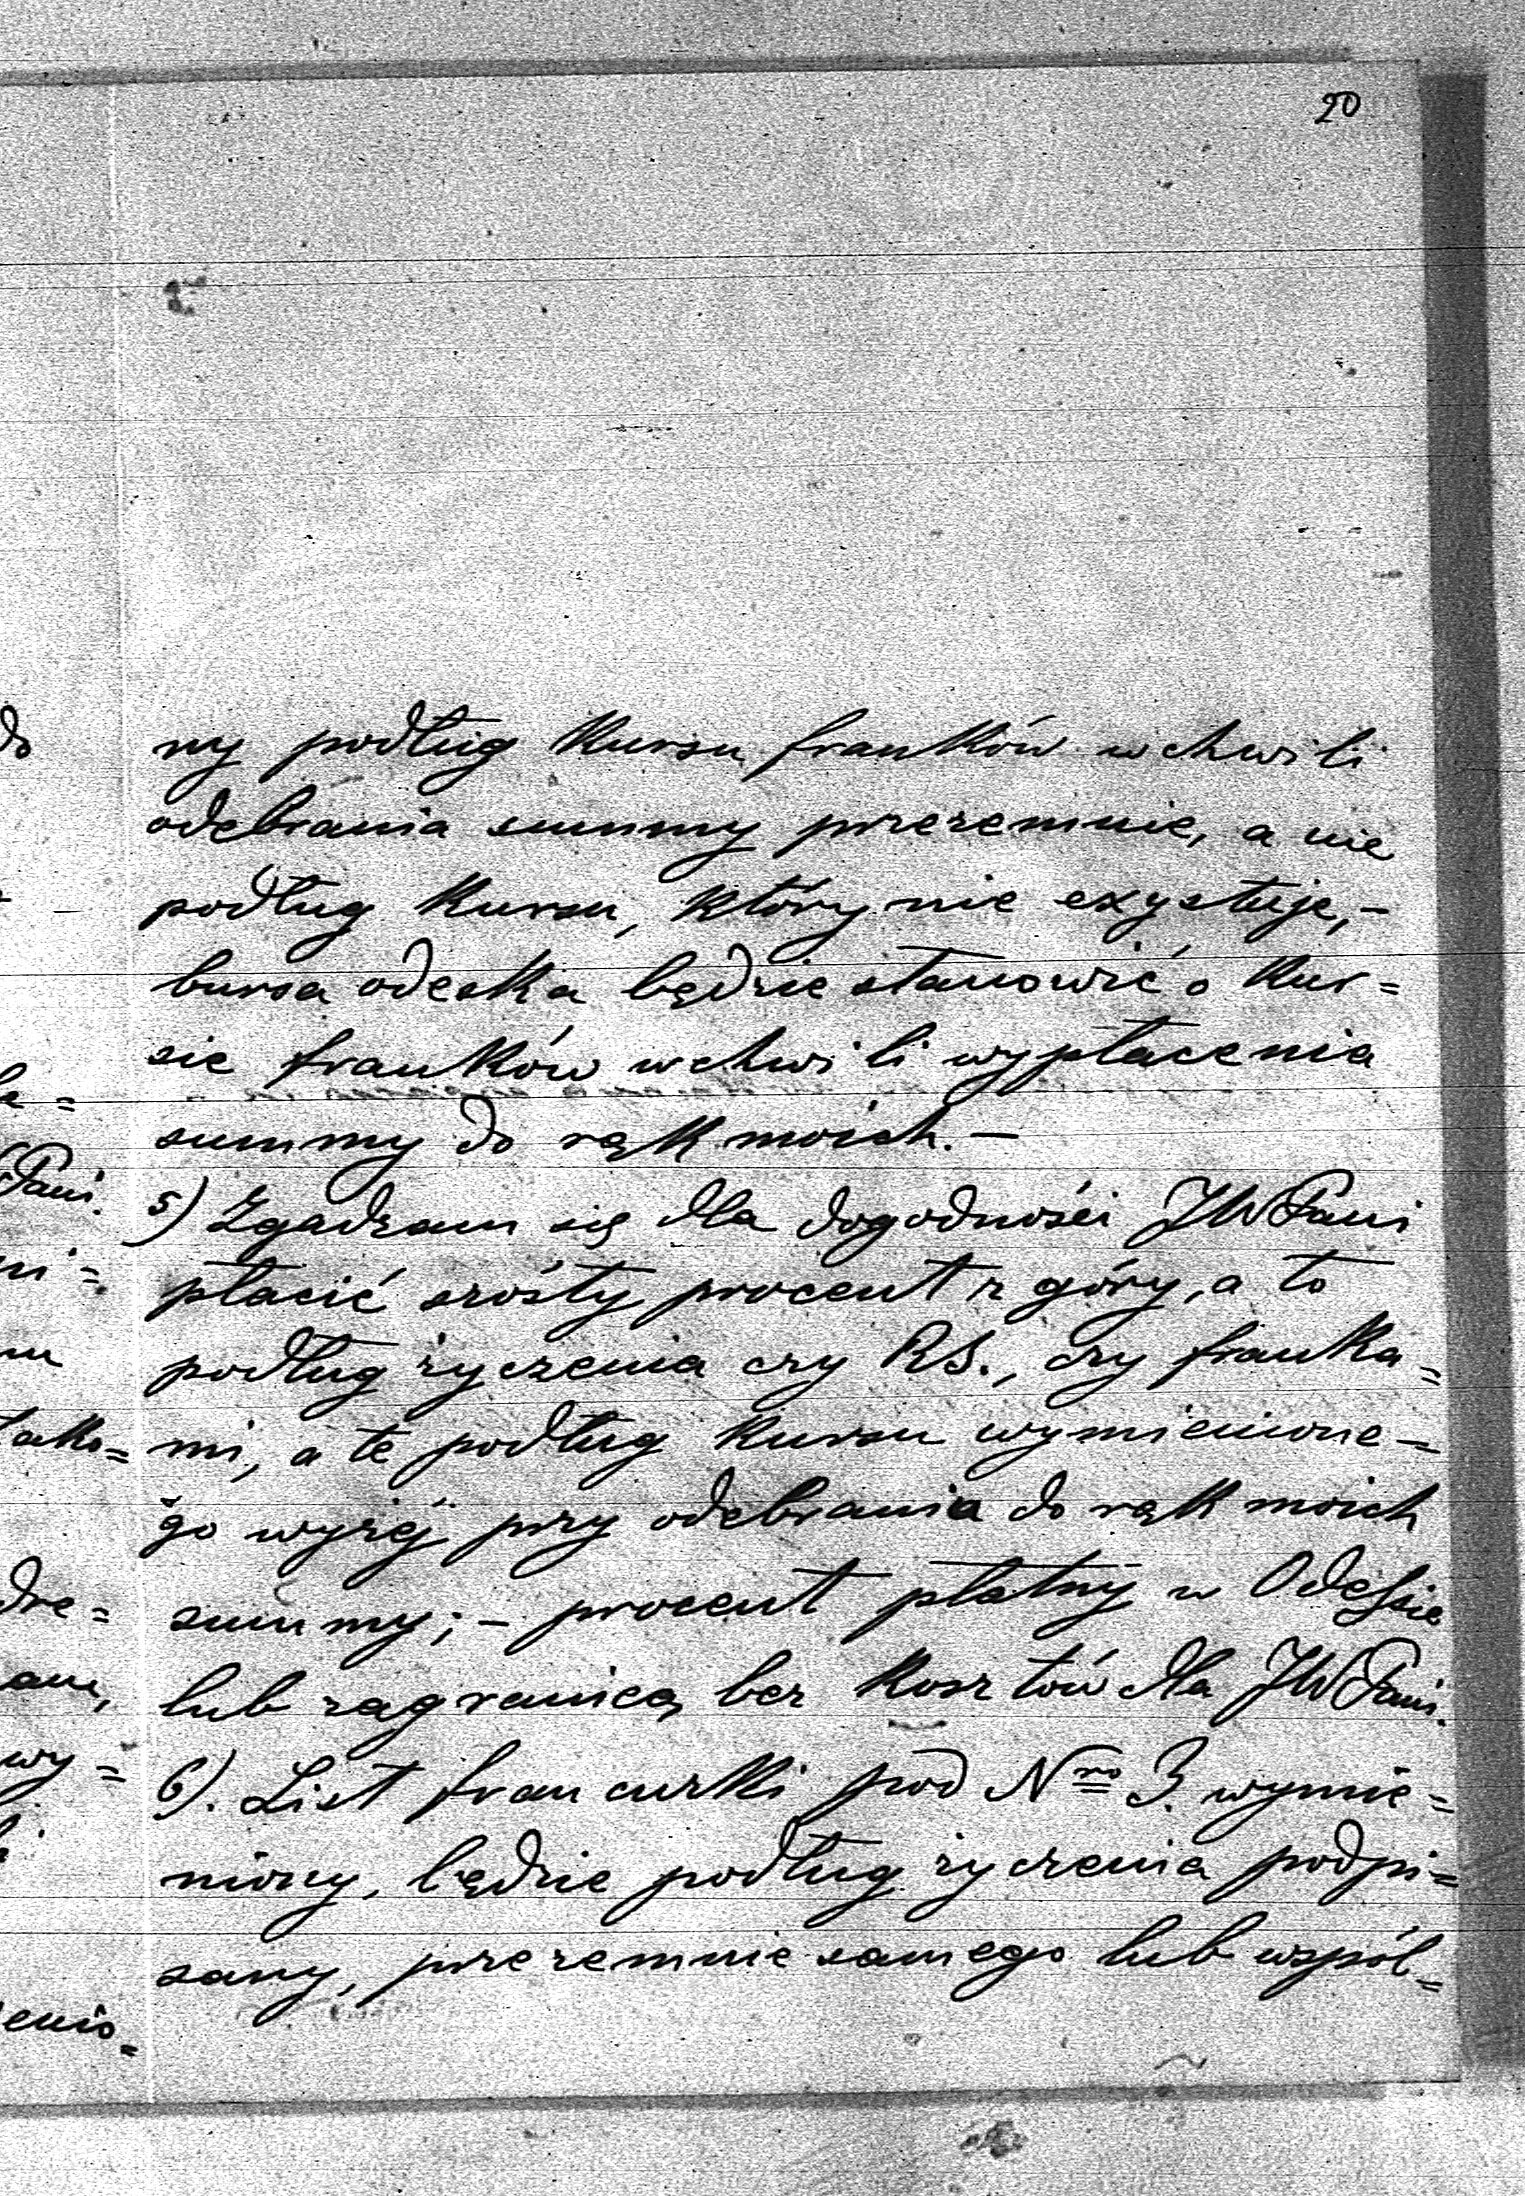 20
ny podług kursu franków w chwili
odebrania summy przezemnie, a nie
podług kursu, który nie exystuje, -
bursa odeska będzie stanowić o kur=
sie franków w chwili wypłacenia
summy do rąk moich. -
5) Zgadzam się dla dogodności JWPani
płacić szósty procent z góry, a to
podług życzenia czy RS., czy franka=
mi, a te podług kursu wymienione=
go wyżej przy odebrania do rąk moich
summy; - procent płatny w Odessie
lub zagranicą bez kosztów dla JWPani.
6). List francuzki pod Nro 3. wymie=
niony, będzie podług życzenia podpi=
sany, przezemnie samego lub wspól=